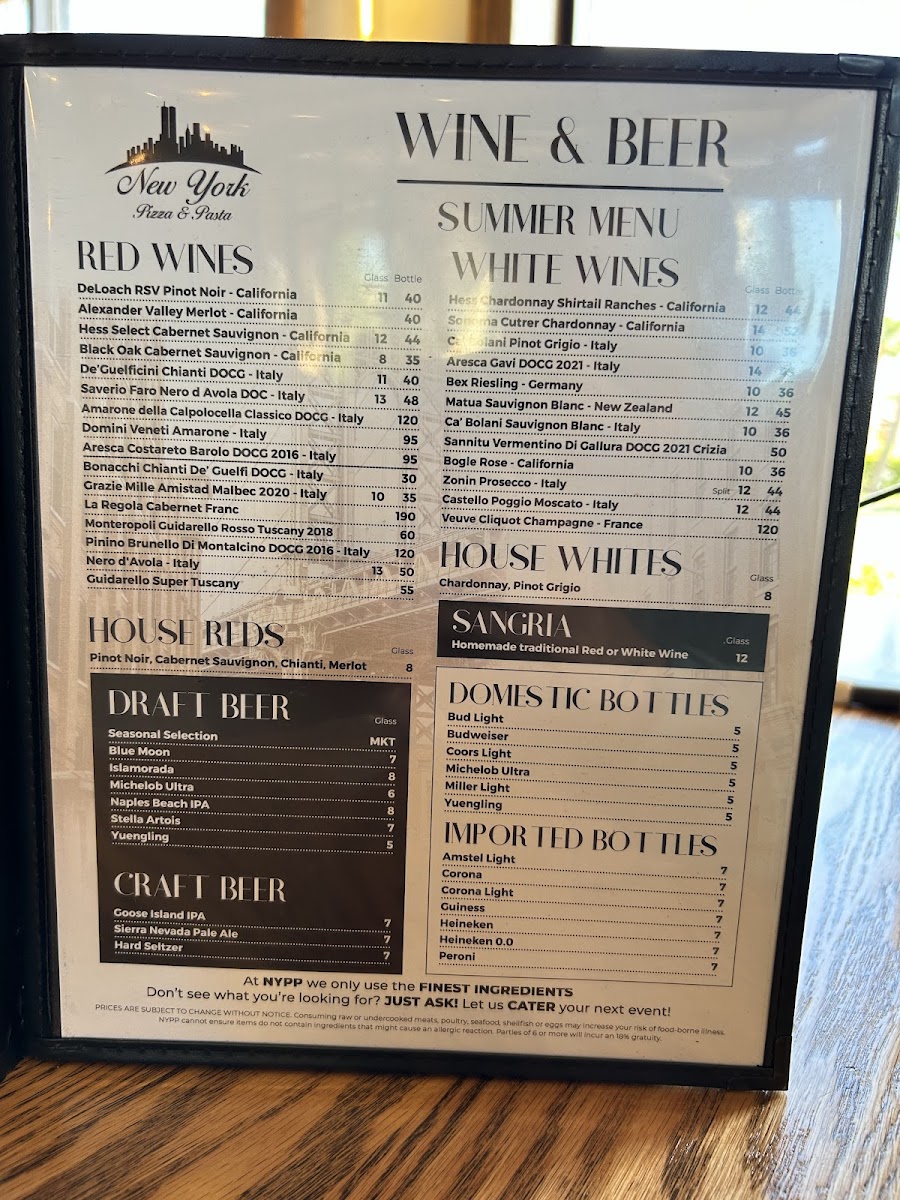 New York
Pizza & Pasta
WINE & BEER
SUMMER MENU
RED WINES
Glass Bottle
DeLoach RSV Pinot Noir - California 11 40
Alexander Valley Merlot - California 40
Hess Select Cabernet Sauvignon - California 12 44
Black Oak Cabernet Sauvignon - California 8 35
De'Guelficini Chianti DOCG - Italy 11 40
Saverio Faro Nero d Avola DOC - Italy 13 48
Amarone della Calpolocella Classico DOCG - Italy 120
Domini Veneti Amarone - Italy 95
Aresca Costareto Barolo DOCG 2016 - Italy 95
Bonacchi Chianti De' Guelfi DOCG - Italy 30
Grazie Mille Amistad Malbec 2020 - Italy 10 35
La Regola Cabernet Franc 190
Monteropoli Guidarello Rosso Tuscany 2018 60
Pinino Brunello Di Montalcino DOCG 2016 - Italy 120
Nero d'Avola - Italy 13 50
Guidarello Super Tuscany 55
HOUSE REDS
Glass
Pinot Noir, Cabernet Sauvignon, Chianti, Merlot 8
DRAFT BEER
Glass
Seasonal Selection MKT
Blue Moon 7
Islamorada 8
Michelob Ultra 6
Naples Beach IPA 8
Stella Artois 7
Yuengling 5
CRAFT BEER
Goose Island IPA 7
Sierra Nevada Pale Ale 7
Hard Seltzer 7
WHITE WINES
Glass Bottle
Hess Chardonnay Shirtail Ranches - California 12 44
Sonoma Cutrer Chardonnay - California 14
Ca' Bolani Pinot Grigio - Italy 10 36
Aresca Gavi DOCG 2021 - Italy 14
Bex Riesling - Germany 10 36
Matua Sauvignon Blanc - New Zealand 12 45
Ca' Bolani Sauvignon Blanc - Italy 10 36
Sannitu Vermentino Di Gallura DOCG 2021 Crizia 50
Bogle Rose - California 10 36
Zonin Prosecco - Italy Split 12 44
Castello Poggio Moscato - Italy 12 44
Veuve Cliquot Champagne - France 120
HOUSE WHITES
Glass
Chardonnay, Pinot Grigio 8
SANGRIA
.Glass
Homemade traditional Red or White Wine 12
DOMESTIC BOTTLES
Bud Light 5
Budweiser 5
Coors Light 5
Michelob Ultra 5
Miller Light 5
Yuengling 5
IMPORTED BOTTLES
Amstel Light 7
Corona 7
Corona Light 7
Guiness 7
Heineken 7
Heineken 0.0 7
Peroni 7
At NYPP we only use the FINEST INGREDIENTS
Don't see what you're looking for? JUST ASK! Let us CATER your next event!
PRICES ARE SUBJECT TO CHANGE WITHOUT NOTICE. Consuming raw or undercooked meats, poultry, seafood, shellfish or eggs may increase your risk of food-borne illness.
NYPP cannot ensure items do not contain ingredients that might cause an allergic reaction. Parties of 6 or more will incur an 18% gratuity.